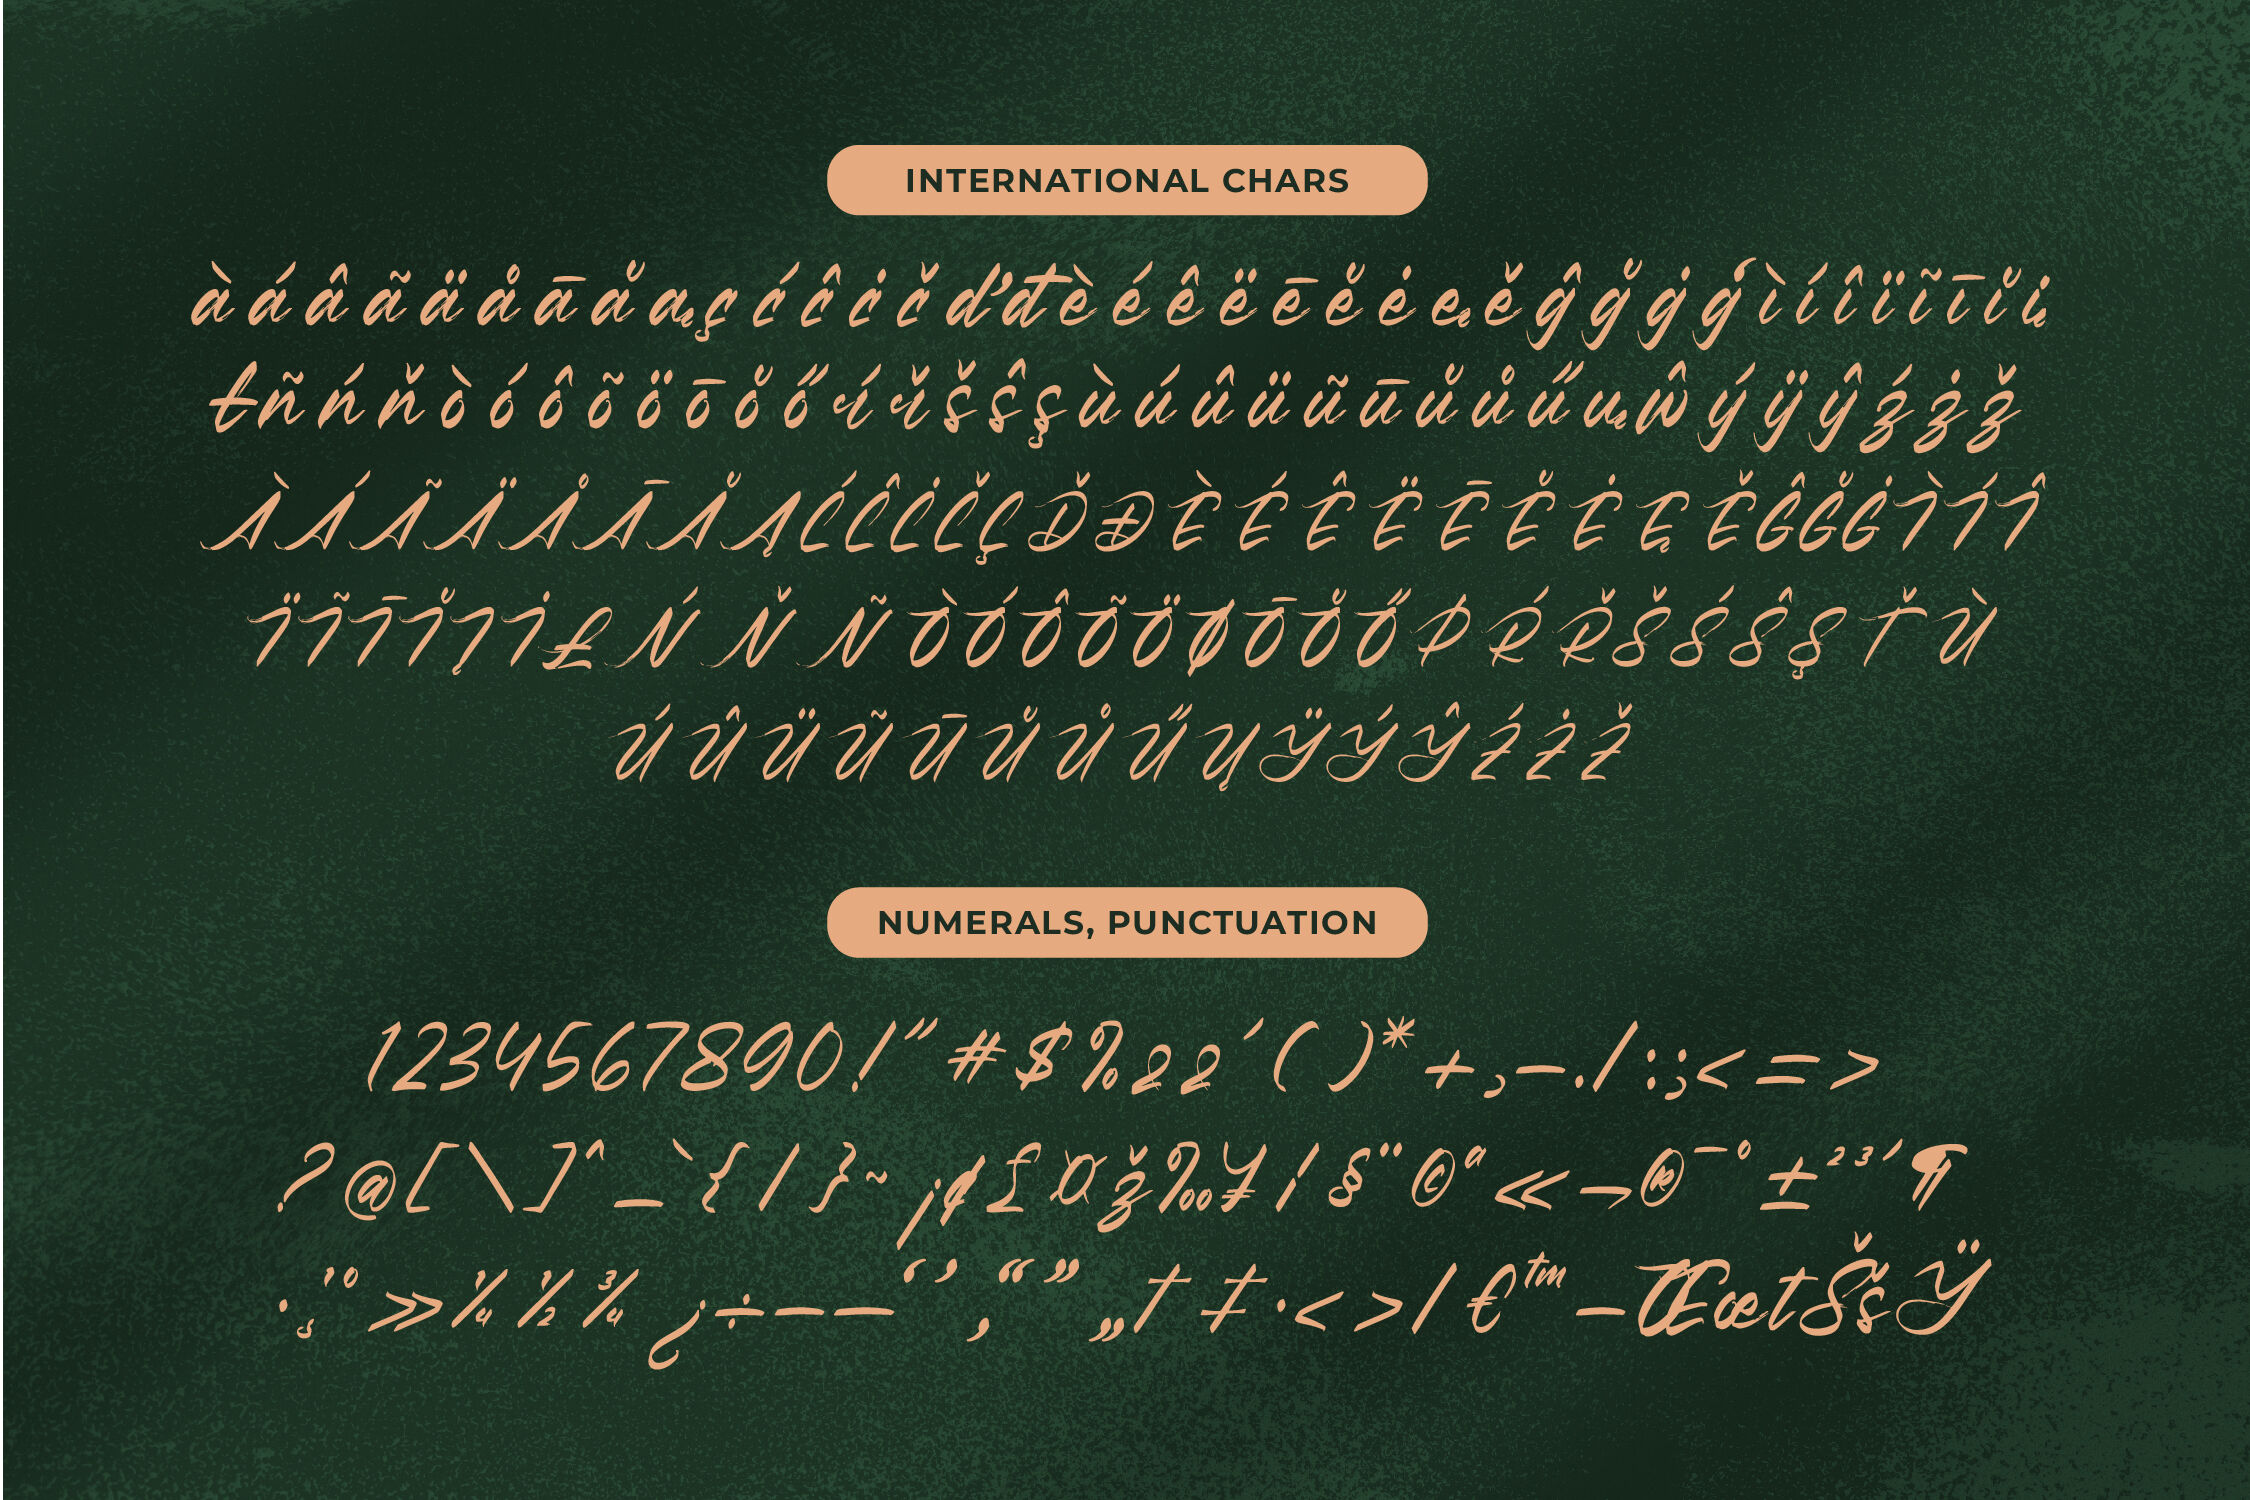 INTERNATIONAL CHARS
à á â ã ä å ā ă ą ç ć ĉ ċ č ď đ è é ê ë ē ĕ ė ę ě ĝ ğ ġ ģ ì í î ï ĩ ī ĭ į
ł ñ ń ň ò ó ô õ ö ō ŏ ő ŕ ř š ŝ ş ù ú û ü ũ ū ŭ ů ű ų ŵ ý ÿ ŷ ź ż ž
À Á Ã Ä Å Ā Ă Ą Ć Ĉ Ċ Č Ç Ď Đ È É Ê Ë Ē Ĕ Ė Ę Ě Ĝ Ğ Ġ Ì Í Î
Ï Ĩ Ī Ĭ Į İ Ł Ń Ň Ñ Ò Ó Ô Õ Ö Ø Ō Ŏ Ő Þ Ŕ Ř Š Ś Ŝ Ş Ť Ù
Ú Û Ü Ũ Ū Ŭ Ů Ű Ų Ÿ Ý Ŷ Ź Ż Ž
NUMERALS, PUNCTUATION
1 2 3 4 5 6 7 8 9 0 ! " # $ % & & ' ( ) * + , - . / : ; < = >
? @ [ \ ] ^ _ ` { | } ~ ¡ ¢ £ ¤ ž ‰ ¥ ¦ § ¨ © ª « ¬ ® ¯ ° ± ² ³ ´ ¶
· ¸ ¹ º » ¼ ½ ¾ ¿ ÷ – — ‘ ’ ‚ “ ” „ † ‡ · < > / € ™ − Œ œ t Š š Ÿ